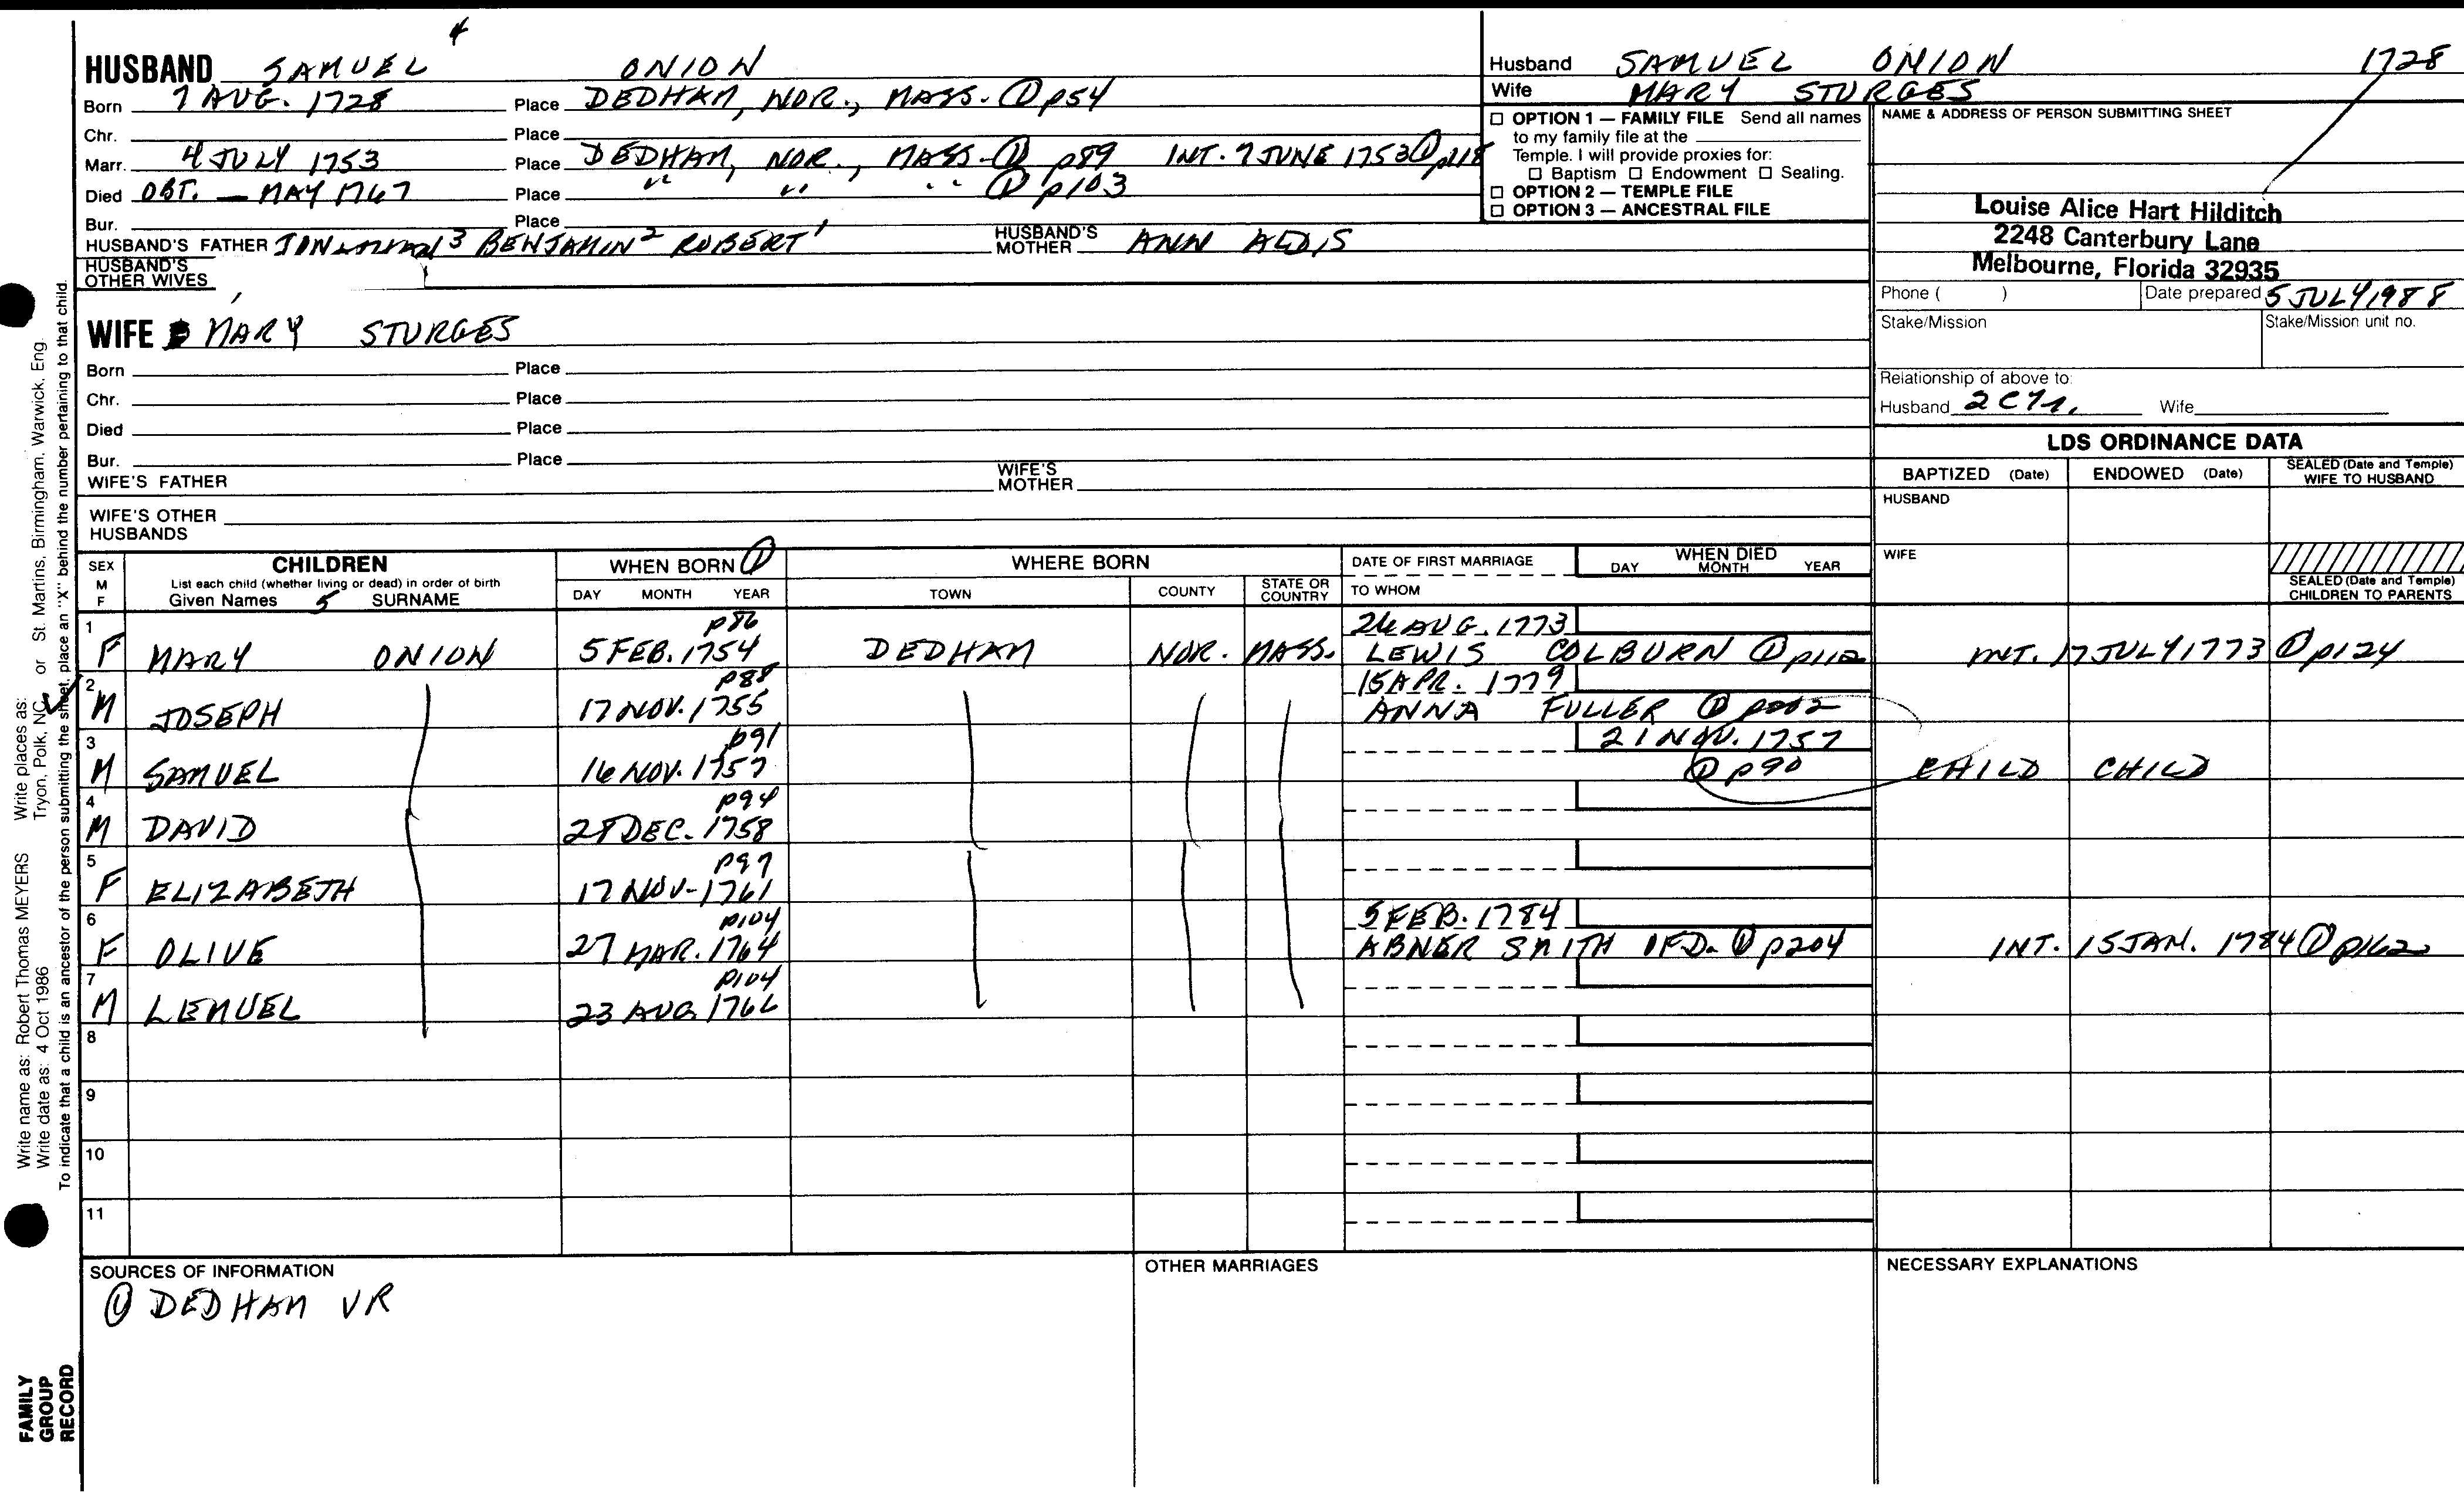 4
HUSBAND SAMUEL ONION
Born 7 AUG. 1728 Place DEDHAM, NOR., MASS. ① p54
Chr. Place
Marr. 4 JULY 1753 Place DEDHAM, NOR., MASS. ① p89 INT. 7 JUNE 1753 ① p118
Died OBT. — MAY 1767 Place " " " ① p103
Bur. Place
HUSBAND'S FATHER JONATHAN 3 BENJAMIN 2 ROBERT 1 HUSBAND'S MOTHER ANN ALDIS
HUSBAND'S OTHER WIVES
WIFE MARY STURGES
Born Place
Chr. Place
Died Place
Bur. Place
WIFE'S FATHER WIFE'S MOTHER
WIFE'S OTHER HUSBANDS
Husband SAMUEL ONION 1728
Wife MARY STURGES
☐ OPTION 1 — FAMILY FILE Send all names
to my family file at the
Temple. I will provide proxies for:
☐ Baptism ☐ Endowment ☐ Sealing.
☐ OPTION 2 — TEMPLE FILE
☐ OPTION 3 — ANCESTRAL FILE
NAME & ADDRESS OF PERSON SUBMITTING SHEET
Louise Alice Hart Hilditch
2248 Canterbury Lane
Melbourne, Florida 32935
Phone ( ) Date prepared 5 JULY 1988
Stake/Mission Stake/Mission unit no.
Relationship of above to:
Husband 2C7R. Wife
LDS ORDINANCE DATA
BAPTIZED (Date) ENDOWED (Date) SEALED (Date and Temple) WIFE TO HUSBAND
HUSBAND
WIFE
SEALED (Date and Temple) CHILDREN TO PARENTS
SEX M F
CHILDREN
List each child (whether living or dead) in order of birth
Given Names 5 SURNAME
WHEN BORN ①
DAY MONTH YEAR
WHERE BORN
TOWN COUNTY STATE OR COUNTRY
DATE OF FIRST MARRIAGE
TO WHOM
WHEN DIED
DAY MONTH YEAR
1 p86 26 AUG. 1773
F MARY ONION 5 FEB. 1754 DEDHAM NOR. MASS. LEWIS COLBURN ① p112 INT. 17 JULY 1773 ① p124
2 p88 15 APR. 1779
M JOSEPH 17 NOV. 1755 ANNA FULLER ①
3 p91 21 NOV. 1757
M SAMUEL 16 NOV. 1757 ① p90 CHILD CHILD
4 p94
M DAVID 28 DEC. 1758
5 p97
F ELIZABETH 17 NOV. 1761
6 p104 5 FEB. 1784
F OLIVE 27 MAR. 1764 ABNER SMITH OF D. ① p204 INT. 15 JAN. 1784 ① p162
7 p104
M LEMUEL 23 AUG. 1766
8
9
10
11
SOURCES OF INFORMATION
① DEDHAM VR
OTHER MARRIAGES
NECESSARY EXPLANATIONS
Write name as: Robert Thomas MEYERS Write places as:
Write date as: 4 Oct 1986 Tryon, Polk, NC or St. Martins, Birmingham, Warwick, Eng.
To indicate that a child is an ancestor of the person submitting the sheet, place an "X" behind the number pertaining to that child.
FAMILY
GROUP
RECORD